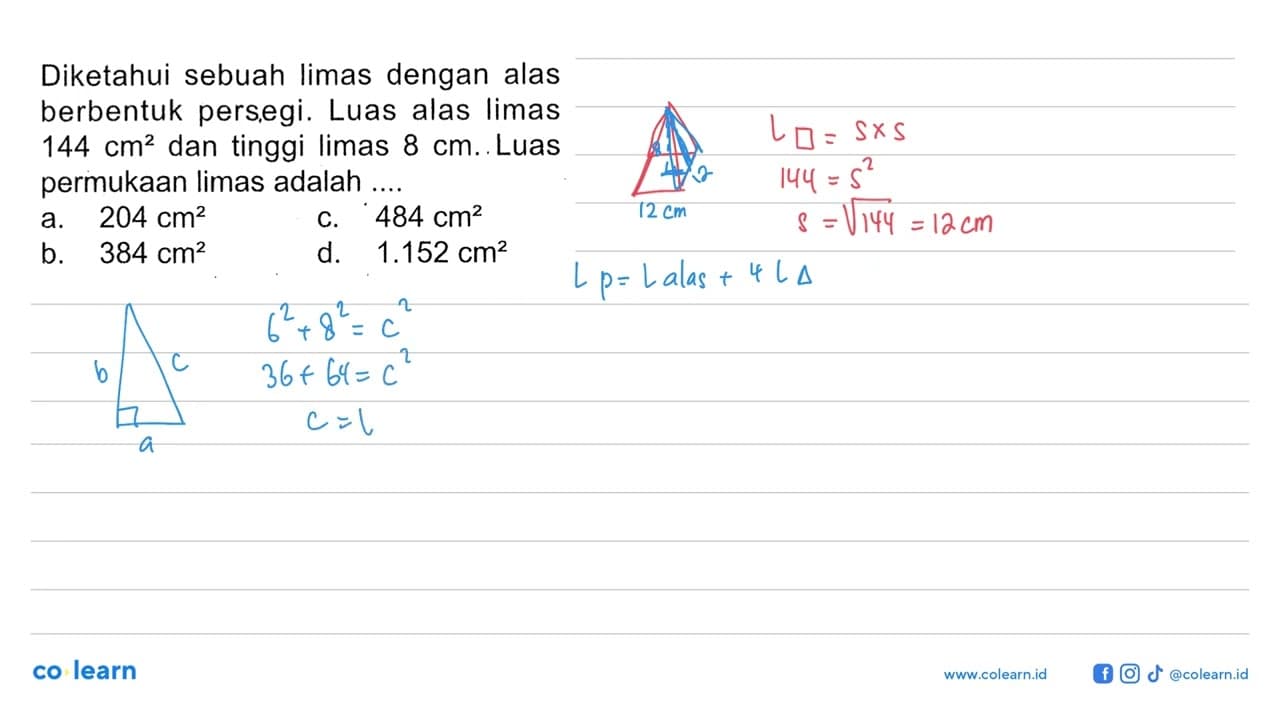 Diketahui sebuah limas dengan alas
berbentuk persegi. Luas alas limas
144 cm² dan tinggi limas 8 cm. Luas
permukaan limas adalah ....
a. 204 cm² c. 484 cm²
b. 384 cm² d. 1.152 cm²
12 cm
L □ = s x s
144 = s²
s = √144 = 12 cm
L p = L alas + 4 L Δ
b c
a
6² + 8² = c²
36 + 64 = c²
c = 1
co learn
www.colearn.id @colearn.id